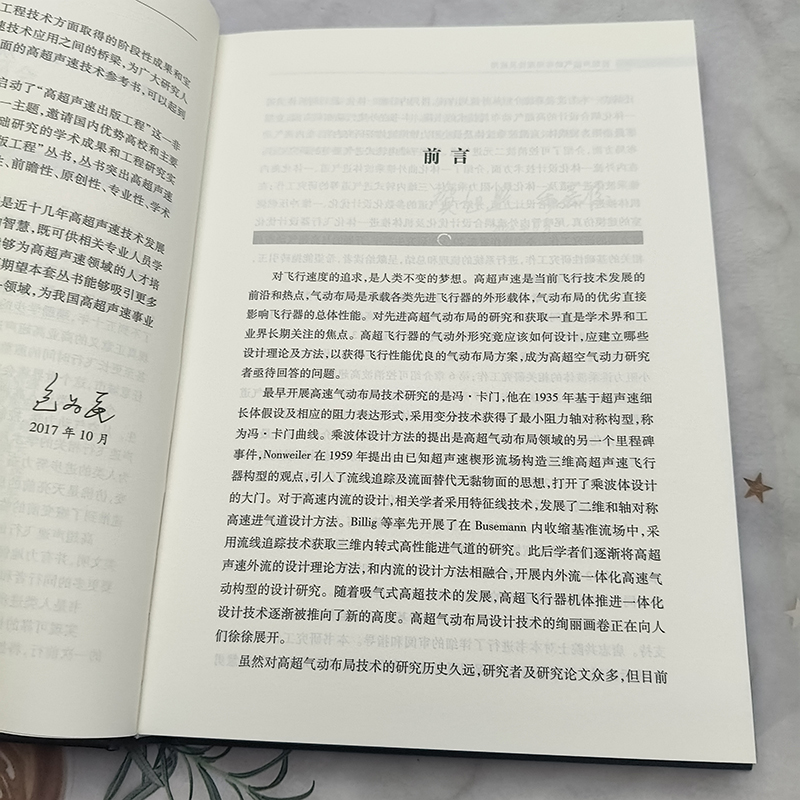 工程技术方面取得的阶段性成果和宝
速技术应用之间的桥梁，为广大研究人
面的高超声速技术参考书，可以起到
启动了“高超声速出版工程”这一非
一主题，邀请国内优势高校和主要
础研究的学术成果和工程研究实
版工程”丛书，丛书突出高超声速
性、前瞻性、原创性、专业性、学术
是近十几年高超声速技术发展
的智慧，既可供相关专业人员学
能够为高超声速领域的人才培
期望本套丛书能够吸引更多
领域，为我国高超声速事业
包为民
2017 年 10 月
前 言
对飞行速度的追求，是人类不变的梦想。高超声速是当前飞行技术发展的
前沿和热点，气动布局是承载各类先进飞行器的外形载体，气动布局的优劣直接
影响飞行器的总体性能。对先进高超气动布局的研究和获取一直是学术界和工
业界长期关注的焦点。高超飞行器的气动外形究竟应该如何设计，应建立哪些
设计理论及方法，以获得飞行性能优良的气动布局方案，成为高超空气动力研究
者亟待回答的问题。
最早开展高速气动布局技术研究的是冯·卡门，他在 1935 年基于超声速细
长体假设及相应的阻力表达形式，采用变分技术获得了最小阻力轴对称构型，称
为冯·卡门曲线。乘波体设计方法的提出是高超气动布局领域的另一个里程碑
事件，Nonweiler 在 1959 年提出由已知超声速楔形流场构造三维高超声速飞行
器构型的观点，引入了流线追踪及流面替代无黏物面的思想，打开了乘波体设计
的大门。对于高速内流的设计，相关学者采用特征线技术，发展了二维和轴对称
高速进气道设计方法。Billig 等率先开展了在 Busemann 内收缩基准流场中，采
用流线追踪技术获取三维内转式高性能进气道的研究。此后学者们逐渐将高超
声速外流的设计理论方法，和内流的设计方法相融合，开展内外流一体化高速气
动构型的设计研究。随着吸气式高超技术的发展，高超飞行器机体推进一体化
设计技术逐渐被推向了新的高度。高超气动布局设计技术的绚丽画卷正在向人
们徐徐展开。
虽然对高超气动布局技术的研究历史久远，研究者及研究论文众多，但目前